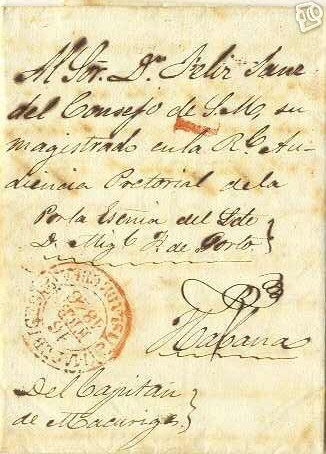 Al Sor. Dn. Felix Sanz
del Consejo de S.M, su
magistrado en la Rl. Au-
diencia Pretorial de la
Por la Escnia del Ldo
D. Migl. de Porto
Habana
Del Capitán
de Macuriges